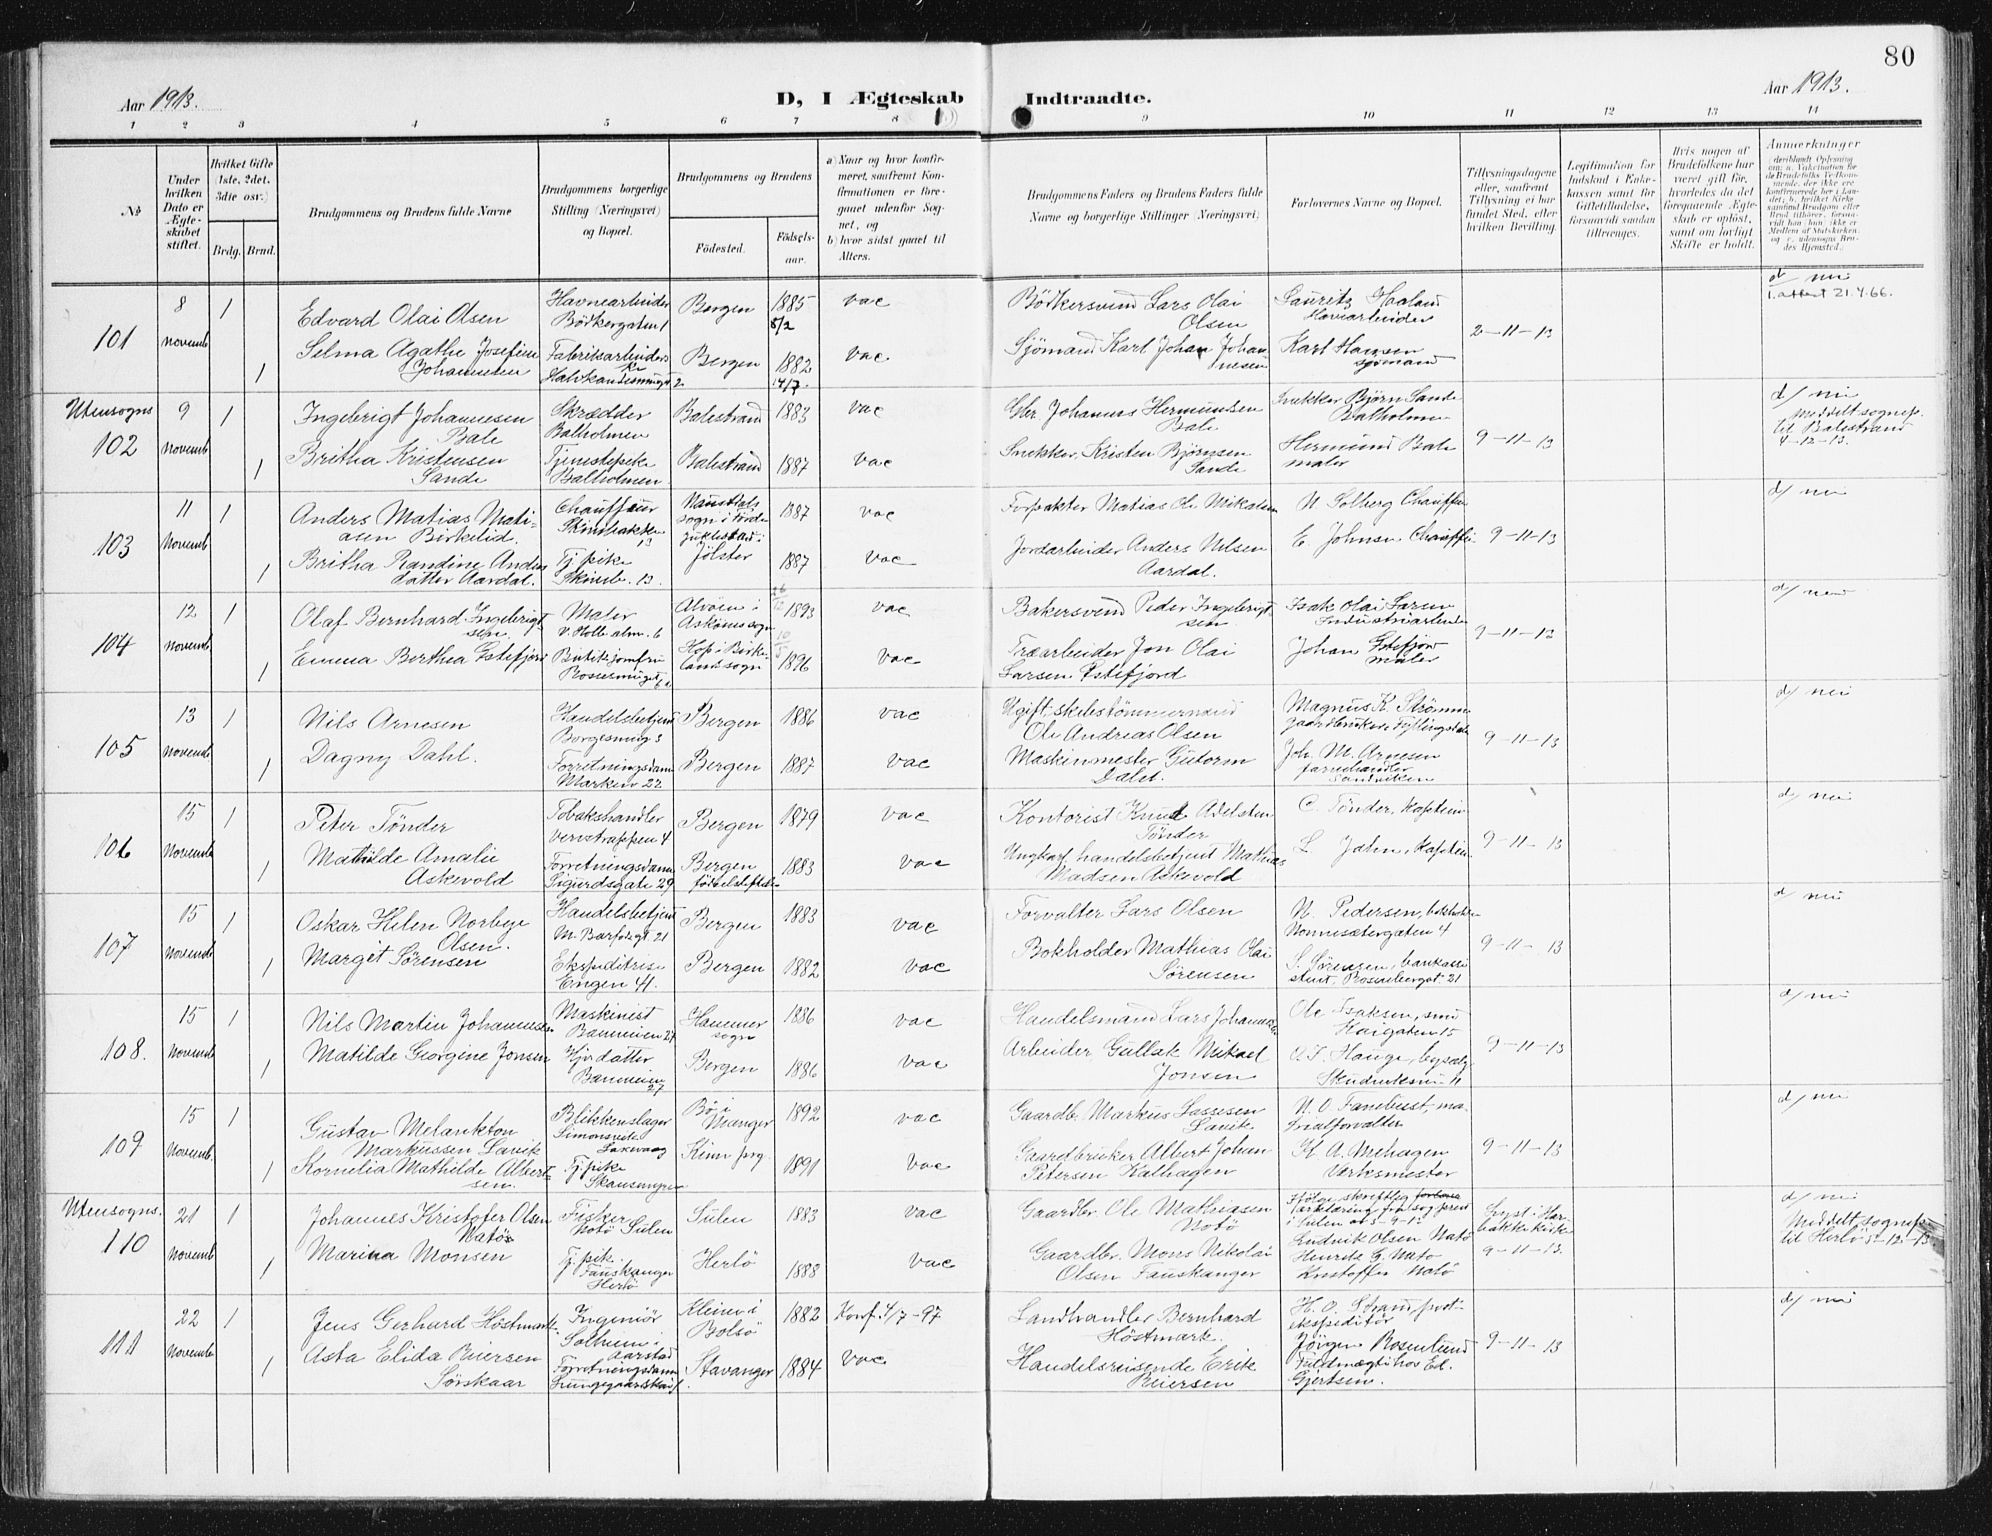 80
Aar 1913.
D, I Ægteskab
Indtraadte.
Aar 1913.
1 2 3 4 5 6 7 8 9 10 11 12 13 14
№
Under hvilken Dato er Ægteskabet stiftet.
Hvilket Gifte (1ste, 2det, 3die osv.)
Brdg. Brud.
Brudgommens og Brudens fulde Navne
Brudgommens borgerlige Stilling (Næringsvei) og Bopæl.
Brudgommens og Brudens
Födested.
Födselsaar.
a) Naar og hvor konfirmeret, saafremt Konfirmationen er foregaaet udenfor Sognet, og
b) hvor sidst gaaet til Alters.
Brudgommens Faders og Brudens Faders fulde Navne og borgerlige Stillinger (Næringsvei)
Forlovernes Navne og Bopæl.
Tillysningsdagene eller, saafremt Tillysning ei har fundet Sted, efter hvilken Bevilling.
Legitimation for Indskud i Enkekassen samt for Giftetilladelse, forsaavidt saadan tiltrænges.
Hvis nogen af Brudefolkene har været gift för, hvorledes da det foregaaende Ægteskab er oplöst, samt om lovligt Skifte er holdt.
Anmerkninger
101 8 Novemb 1 Edvard Olai Olsen Havnearbeider Bödkergaten 1 Bergen 1885 5/2 vac Bödkersvend Lars Olai Olsen Lauritz Haland Havnarbeider 2-11-13 d/ nei
1. attest 21.4.66.
1 Selma Agathe Josefine Johannesen Fabrikarbeiderske 2 Bergen 1882 14/7. vac Sjömand Karl Johan Johannesen Karl Hansen sjömand
Utensogns
102 9 Novemb 1 Ingebrigt Johannesen Bale Skrædder Balholmen Balestrand 1883 vac Gbr. Johannes Hermundsen Bale Snekker Björn Sande Balholmen 9-11-13 d/ nei
Meddelt sognep. til Balestrand 4-12-13.
1 Britha Kristensen Sande Tjenestepike Balholmen Balestrand 1887 vac Snekker Kristen Björnsen Sande Hermund Bale maler
103 11 Novemb 1 Anders Matias Matiasen Birkelid. Chauffeur Skivebakken 13 Naustdals sogn i Förde 1887 vac Forpakter Matias Ole Mikalsen N Solberg Chauffeur 9-11-13 d/ nei
1 Britha Randine Andersdatter Aardal. Tj. pike Skiveb. 13. Jölster 1887 vac Jordarbeider Anders Nilsen Aardal. E Johnsen Chauffør
104 12 Novemb. 1 Olaf Bernhard Ingebrigtsen. Maler V. Holb. alm. 6 Alvöen i Askönes sogn 1893 vac Bakersvend Peder Ingebrigtsen Isak Olai Larsen Industriarbeider 9-11-13 d/ nei
1 Emma Berthea Estefjord Butikjomfru Hop i Birkelandssogn 10/5 1896 vac Træarbeider Jon Olai Larsen Estefjord Johan Estefjord maler
105 13 Novemb 1 Nils Arnesen Handelsbetjent Bergen 1886 vac Ugift skibstömmermand Ole Andreas Olsen Magnus K. Strömme gaardbruker, Fyllingsdalen 9-11-13 d/ nei
1 Dagny Dahl. Forretningsdame Marken 22 Bergen 1887 vac Maskinmester Gutorm Dahl. Joh. M. Arnesen farvehandler Sandviken
106 15 Novemb 1 Peter Tönder Tobakshandler Vervstrappen 4 Bergen 1879 vac Kontorist Knut Adelsten Tönder C. Tönder, Kaptein 9-11-13 d/ nei
1 Mathilde Amalie Askevold Forretningsdame Sigurdsgate 29 Bergen födselstiftelsen 1883 vac Ungkarl, handelsbetjent Mathias Madsen Askevold L. Jahn, Kaptein
107 15 Novemb 1 Oskar Helen Norbye Olsen. Handelsbetjent M. Barfodgt. 21 Bergen 1883 vac Forvalter Lars Olsen N. Pedersen, bokholder Nonnesætergaten 4 9-11-13 d/ nei
1 Margit Sörensen Ekspeditrise Engen 41. Bergen 1882 vac Bokholder Mathias Olai Sörensen S. Sörensen, bankassistent, Rosenbergst. 21
108. 15 Novemb 1 Nils Martin Johannesen Maskinist Banneveien 27 Hammer sogn 1886 vac Handelsmand Lars Johannesen Ole Isaksen, smed Kaigaten 15 9-11-13 d/ nei
1 Matilde Georgine Jonsen Hj. datter Banneveien 27 Bergen 1886 vac Arbeider Gullak Mikael Jonsen A. F. Hauge, byselg. 11
109 15 Novemb. 1 Gustav Melankton Markussen Lavik Blikkenslager Simonsvik Laksevaag Bö i Manger 1892 vac Gaardb. Markus Lassesen Lavik N. O. Fanebust, materialforvalter 9-11-13 d/ nei
1 Kornelia Mathilde Albertsen. Tj. pike Skansemyren Kinn prg. 1891 vac Gaardbruker Albert Johan Petersen Kalhagen H. A. Mehagen Verksmester
Utensogns.
110 21 Novemb 1 Johannes Kristofer Olsen Notö Fisker Notö Sulen Sulen 1883 vac Gaardbr Ole Mathiasen Notö Ifölge skriftlig forklaring fra sogneprest i Sulen av 5-9-13 Ludvik Olsen Notö Lyst i Herbakke kirke 9-11-13. d/ nei
Meddelt sognep. til Herlö 5-12-13.
1 Marina Monsen Tj. pike Fauskanger Herlö Herlö 1888 vac Gaardbr. Mons Nikolai Olsen Fauskanger Henrik G. Notö Kristoffer Notö
111 22 Novemb 1 Jens Gerhard Höstmark Ingeniör Solheim i Aarstad Kleive i Bolsö 1882 Konf. 4/7-97 Landhandler Bernhard Höstmark. H. O. Strand, postekspeditör 9-11-13 d/ nei
1 Asta Elida Reiersen Sörskaar Forretningsdame Lungegaardskai 1 Stavanger 1884 vac Handelsreisende Erik Reiersen Jörgen Rosenlund Fuldmægtig hos Ed. Gjertsen.